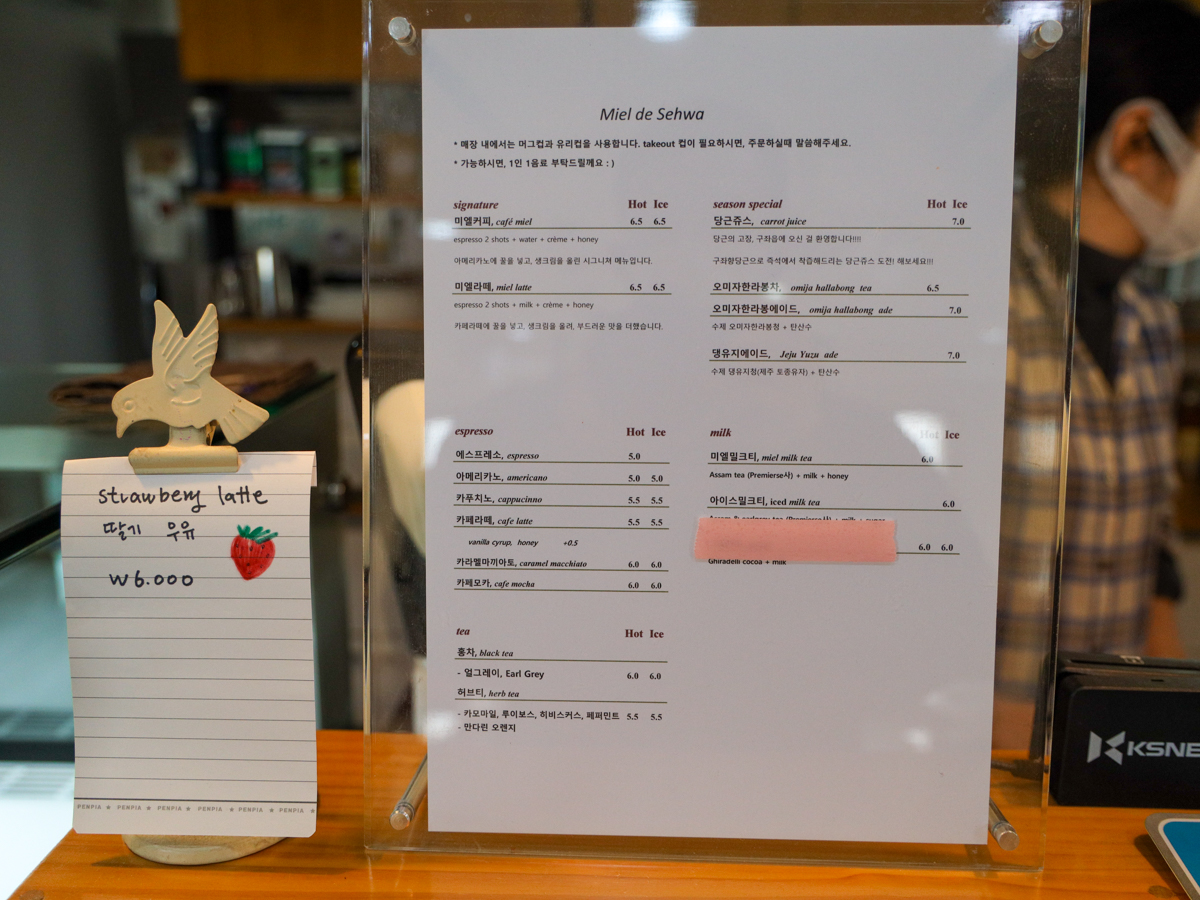 Miel de Sehwa
* 매장 내에서는 머그컵과 유리컵을 사용합니다. takeout 컵이 필요하시면, 주문하실때 말씀해주세요.
* 가능하시면, 1인 1음료 부탁드릴께요 : )
signature Hot Ice
미엘커피, café miel 6.5 6.5
espresso 2 shots + water + crème + honey
아메리카노에 꿀을 넣고, 생크림을 올린 시그니쳐 메뉴입니다.
미엘라떼, miel latte 6.5 6.5
espresso 2 shots + milk + crème + honey
카페라떼에 꿀을 넣고, 생크림을 올려, 부드러운 맛을 더했습니다.
season special Hot Ice
당근쥬스, carrot juice 7.0
당근의 고장, 구좌읍에 오신 걸 환영합니다!!!!
구좌향당근으로 즉석에서 착즙해드리는 당근쥬스 도전! 해보세요!!!
오미자한라봉차, omija hallabong tea 6.5
오미자한라봉에이드, omija hallabong ade 7.0
수제 오미자한라봉청 + 탄산수
댕유지에이드, Jeju Yuzu ade 7.0
수제 댕유지청(제주 토종유자) + 탄산수
espresso Hot Ice
에스프레소, espresso 5.0
아메리카노, americano 5.0 5.0
카푸치노, cappucinno 5.5 5.5
카페라떼, cafe latte 5.5 5.5
vanilla cyrup, honey +0.5
카라멜마끼아토, caramel macchiato 6.0 6.0
카페모카, cafe mocha 6.0 6.0
milk Hot Ice
미엘밀크티, miel milk tea 6.0
Assam tea (Premierse사) + milk + honey
아이스밀크티, iced milk tea 6.0
6.0 6.0
Ghiradelli cocoa + milk
tea Hot Ice
홍차, black tea
- 얼그레이, Earl Grey 6.0 6.0
허브티, herb tea
- 카모마일, 루이보스, 히비스커스, 페퍼민트 5.5 5.5
- 만다린 오렌지
strawberry latte
딸기 우유
₩6.000
PENPIA ★ PENPIA ★ PENPIA ★ PENPIA ★ PENPIA ★ PENPIA ★
KSNE